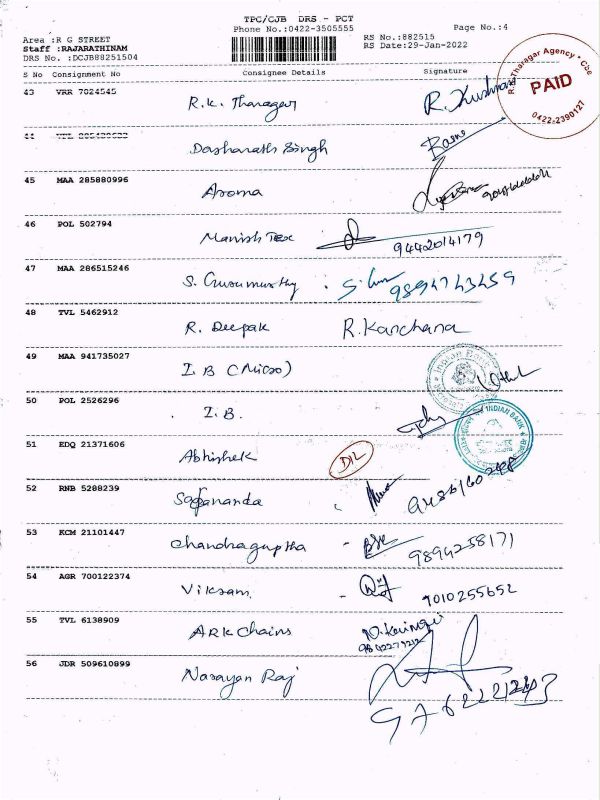 TPC/CJB DRS - PCT
Phone No.:0422-3505555
Page No.:4
Area :R G STREET
Staff :RAJARATHINAM
DRS No. :DCJB88251504
RS No.:882515
RS Date:29-Jan-2022
S No Consignment No Consignee Details Signature
43 VRR 7024545 R.K. Tharagar
PAID
0422-2390127
44 Dasharath Singh
45 MAA 285880996 Aroma
46 POL 502794 Manish Tex 9442014179
47 MAA 286515246 S. Gurumurthy 9894743459
48 TVL 5462912 R. Deepak R. Kanchana
49 MAA 941735027 I B (Micro)
50 POL 2526296 I.B.
INDIAN BANK
51 EDQ 21371606 Abhishek D/L
52 RNB 5288239
53 KCM 21101447 Chandraguptha 9894258171
54 AGR 700122374 Vikram 7010255652
55 TVL 6138909 ARK Chains
56 JDR 509610899 Narayan Raj